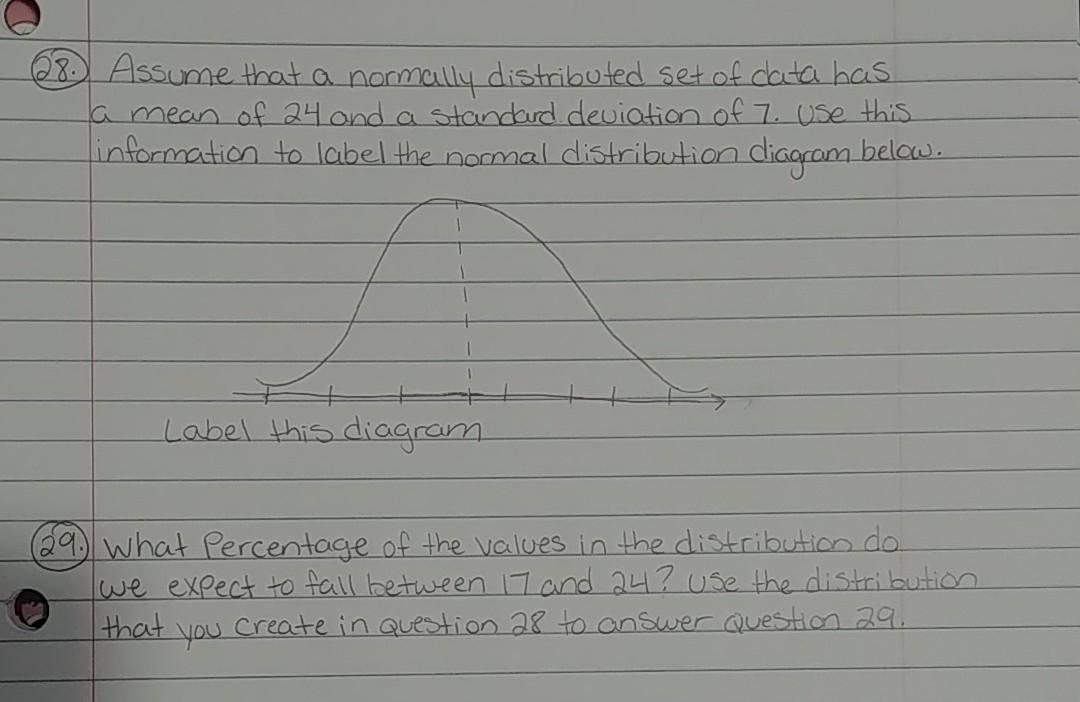 28. Assume that a normally distributed set of data has
a mean of 24 and a standard deviation of 7. Use this
information to label the normal distribution diagram below.
Label this diagram
29. What Percentage of the values in the distribution do
we expect to fall between 17 and 24? Use the distribution
that you create in question 28 to answer question 29.